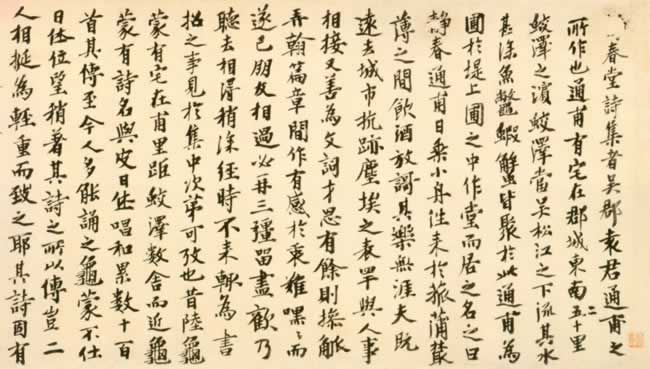 春堂詩集者吳郡袁君通甫之
所作也通甫有宅在郡城東南五二十里
蛟澤之濱蛟澤當吳松江之下流其水
甚深魚鱉鰕蟹皆聚於此通甫為
圃於堤上圃之中作堂而居之名之曰
靜春通甫日乗小舟往来於菰蒲叢
薄之間飲酒放謌其樂無涯夫既
遠去城市抗跡塵埃之表罕與人事
相接又善為文詞才思有餘則操觚
弄翰篇章間作有感於衷雖嘿嘿而
遂已朋友相過必再三壃留盡歡乃
聽去相淂稍深經時不来輒為書
招之事見於集中次第可攷也昔陸龜
蒙有宅在甫里距蛟澤數舍而近龜
蒙有詩名與皮日休唱和累數十百
首其傳至今人多能誦之龜蒙不仕
日休位望稍著其詩之所以傳豈二
人相挺為輕重而致之耶其詩固有